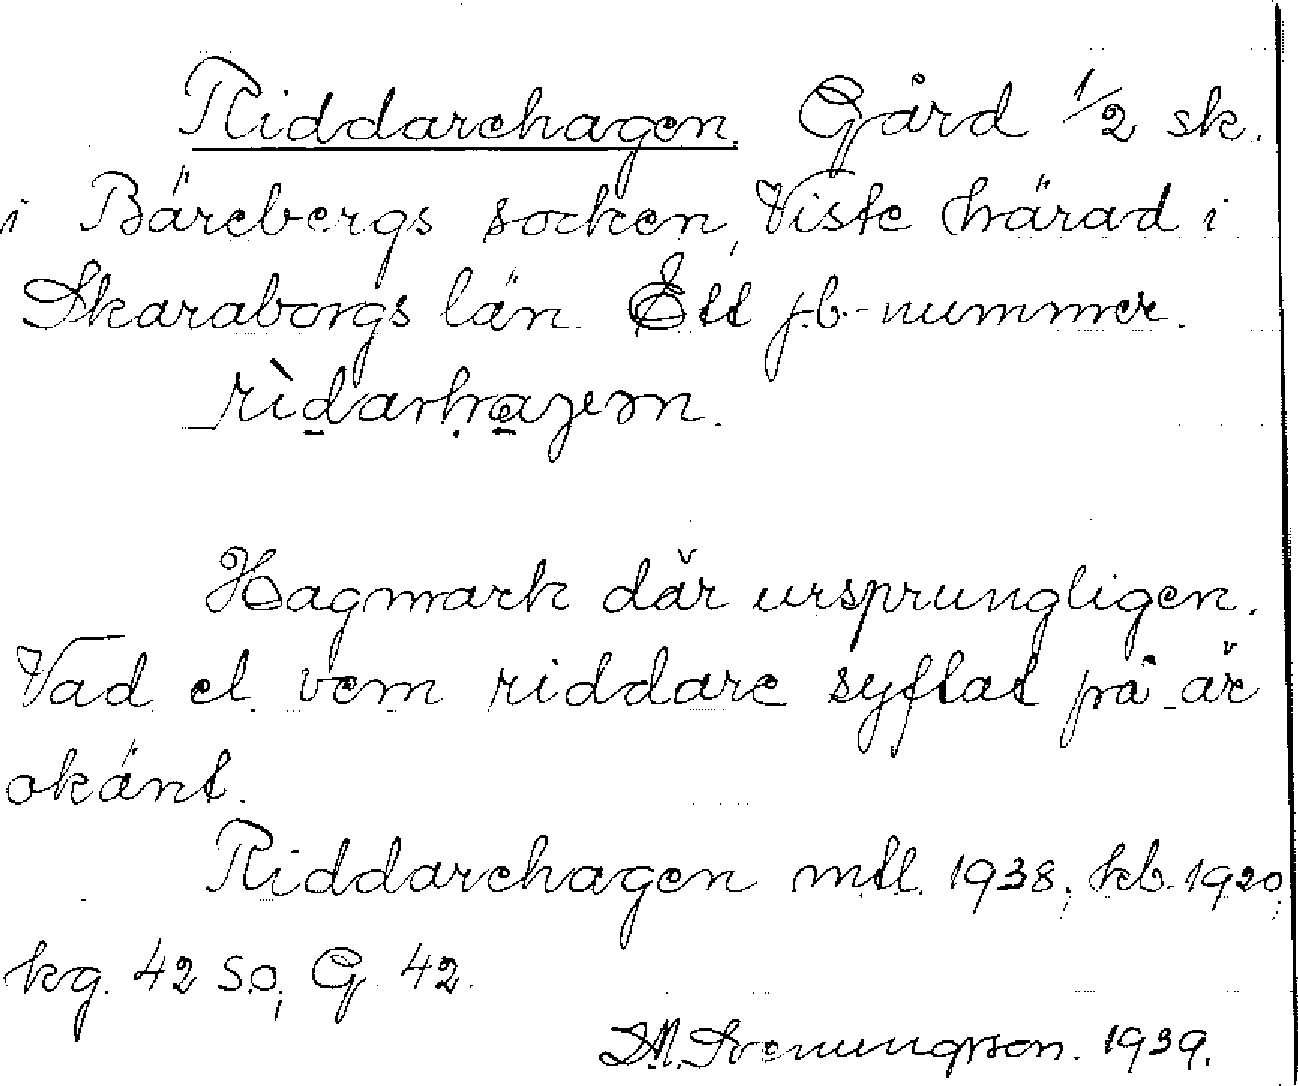 Riddarehagen. Gård 1/2 sk.
i Bärebergs socken, Viste härad i
Skaraborgs län. Ett jb-nummer.
rìdarhagen.
Hagmark där ursprungligen.
Vad el. vem riddare syftat på är
okänt.
Riddarehagen mtl. 1938; kb. 1920;
kg. 42 SO; G 42.
Svenungsson. 1939.